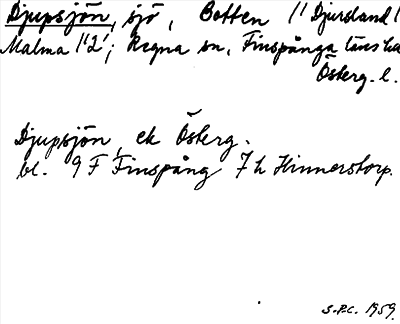 Djupsjön, sjö, Botten 1/1 Djursland 1
Malma 1/2; Regna sn, Finspånga läns hd
Österg. l.
Djupsjön, ek Österg.
bl. 9 F Finspång 7 h Hinnerstorp.
S.P.C. 1959.